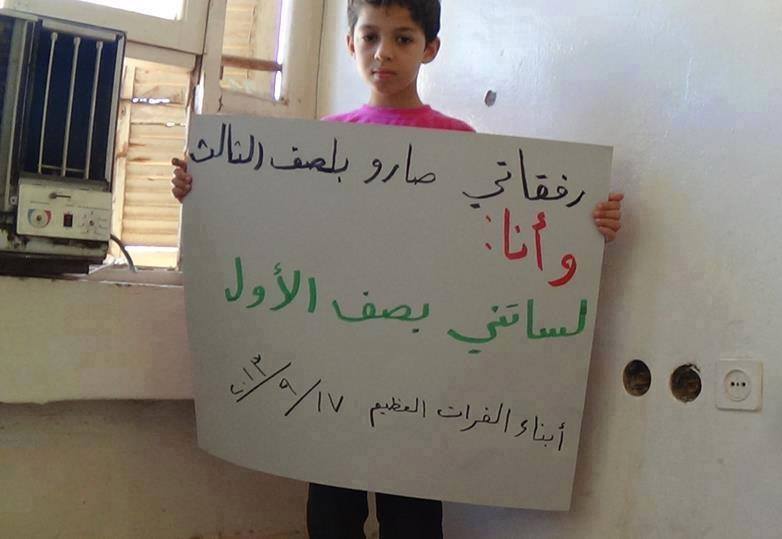 رفقاتي صارو بلصف الثالث
وأنا:
لساتني بصف الأول
أبناء الفرات العظيم ١٧/٩/٢٠١٣